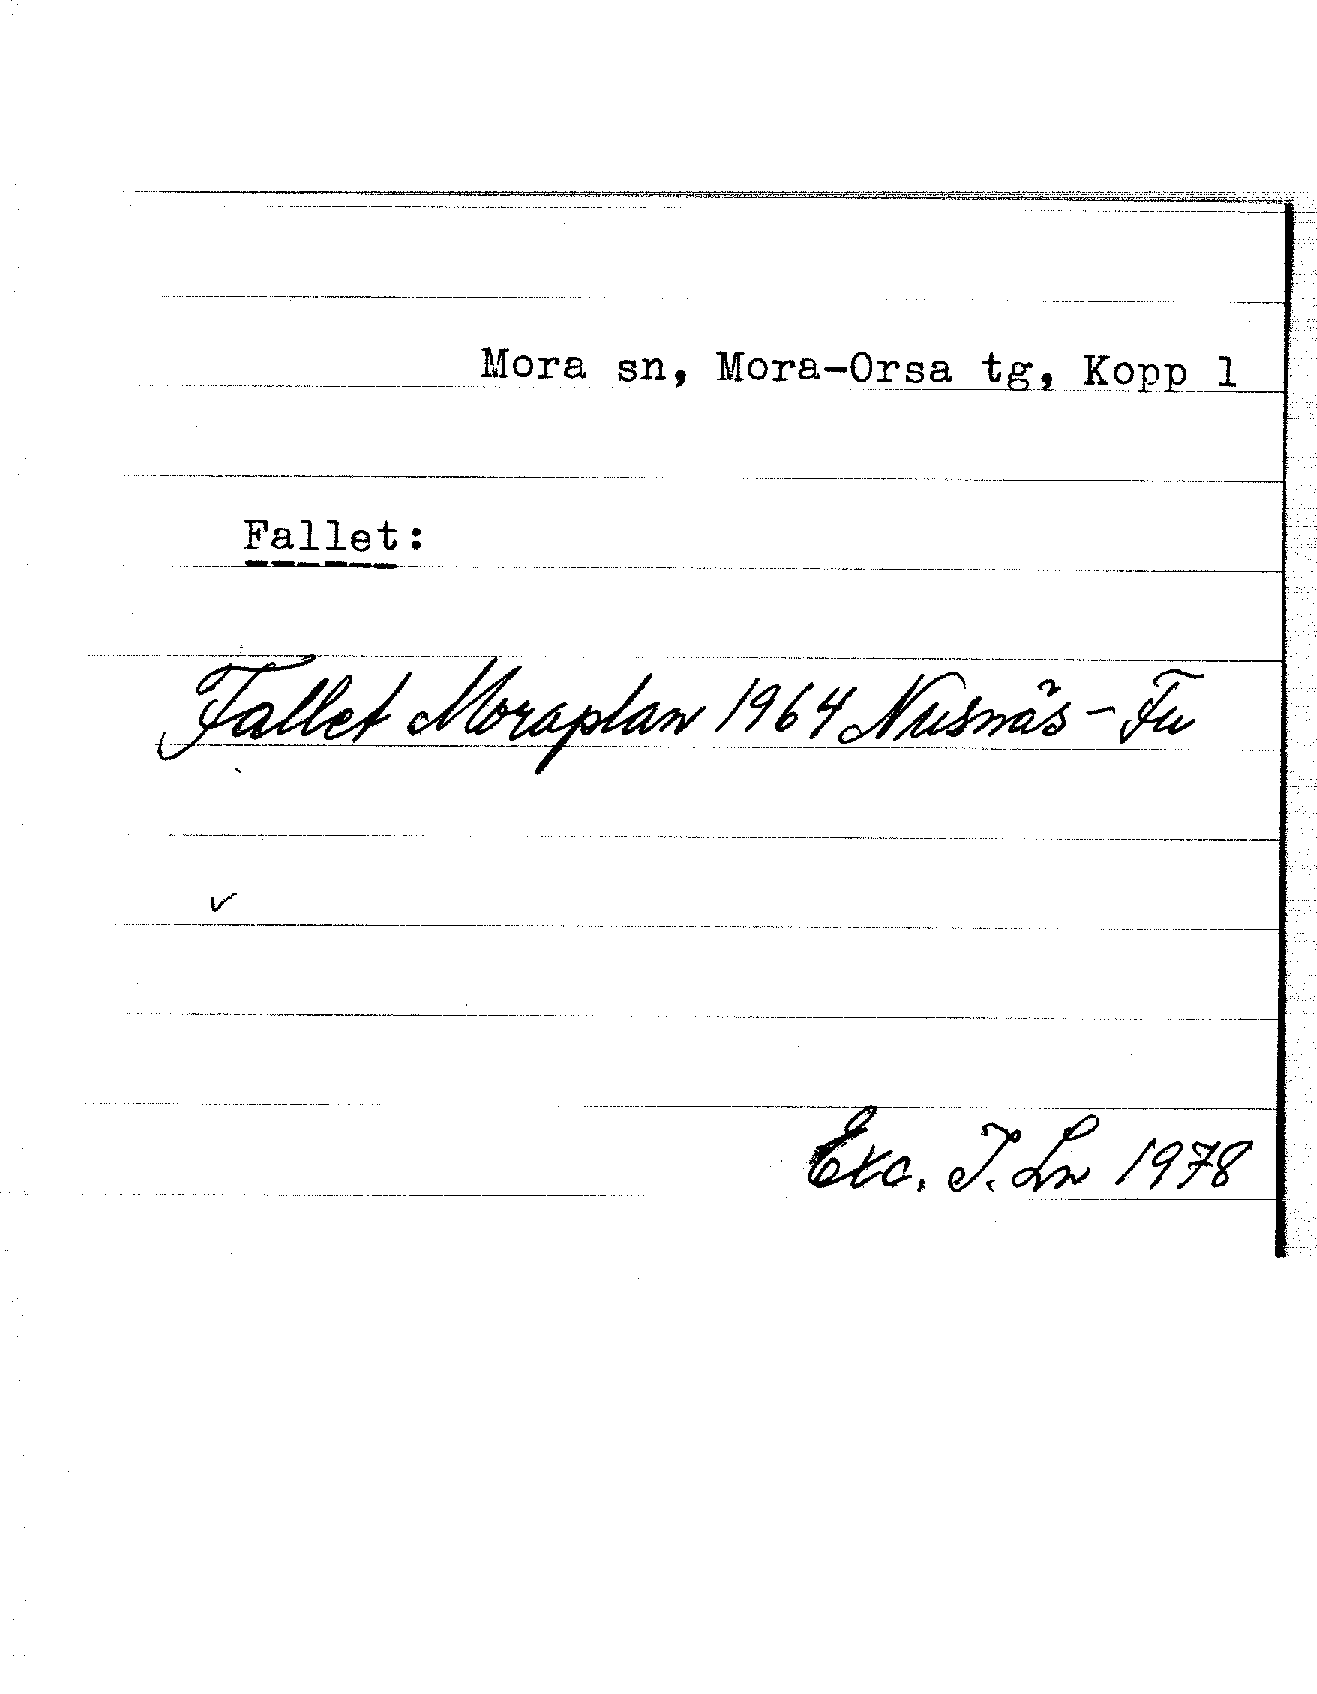 Mora sn, Mora-Orsa tg, Kopp l
Fallet:
Fallet Moraplan 1964 Nusnäs - Fu
Exc. I. Ln 1978